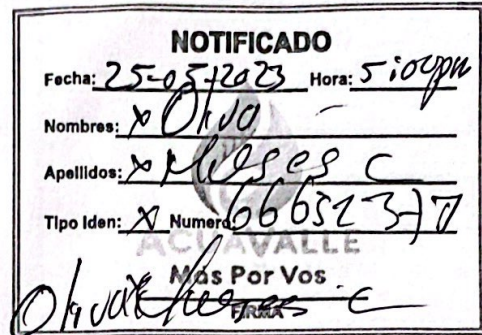 NOTIFICADO
Fecha: 25-05-2023 Hora: 5:00pm
Nombres: x Oliva
Apellidos: x Meses C
Tipo Iden: X Numero: 666523-7
ACUAVALLE
Más Por Vos
Oliva C
FIRMA